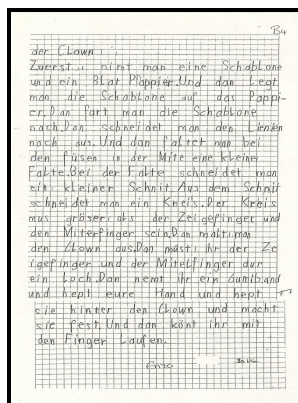 B4
der Clown
Zuerst nimt man eine Schablone
und ein Blat Pappier. Und dan legt
man die Schablone auf das Pappi-
er. Dan fart man die Schablone
nach. Dan schneidet man den Lienien
nach aus. Und dan faltet man bei
den füsen in der Mite eine kleiner
Falte. Bei der Falte schneidet man
ein kleiner Schnit. Aus dem Schnit
schneidet man ein Kreis. Der Kreis
mus gröser als der Zeigefinger und
den Mittelfinger sein. Dan malt man
den Clown aus. Dan müst ihr der Ze
igefinger und der Mittelfinger dur
ein Loch. Dan nemt ihr ein Gumiband
und hept eure Hand und hept
sie hinter den Clown und macht
sie fest. Und dan könt ihr mit
den Finger laufen.